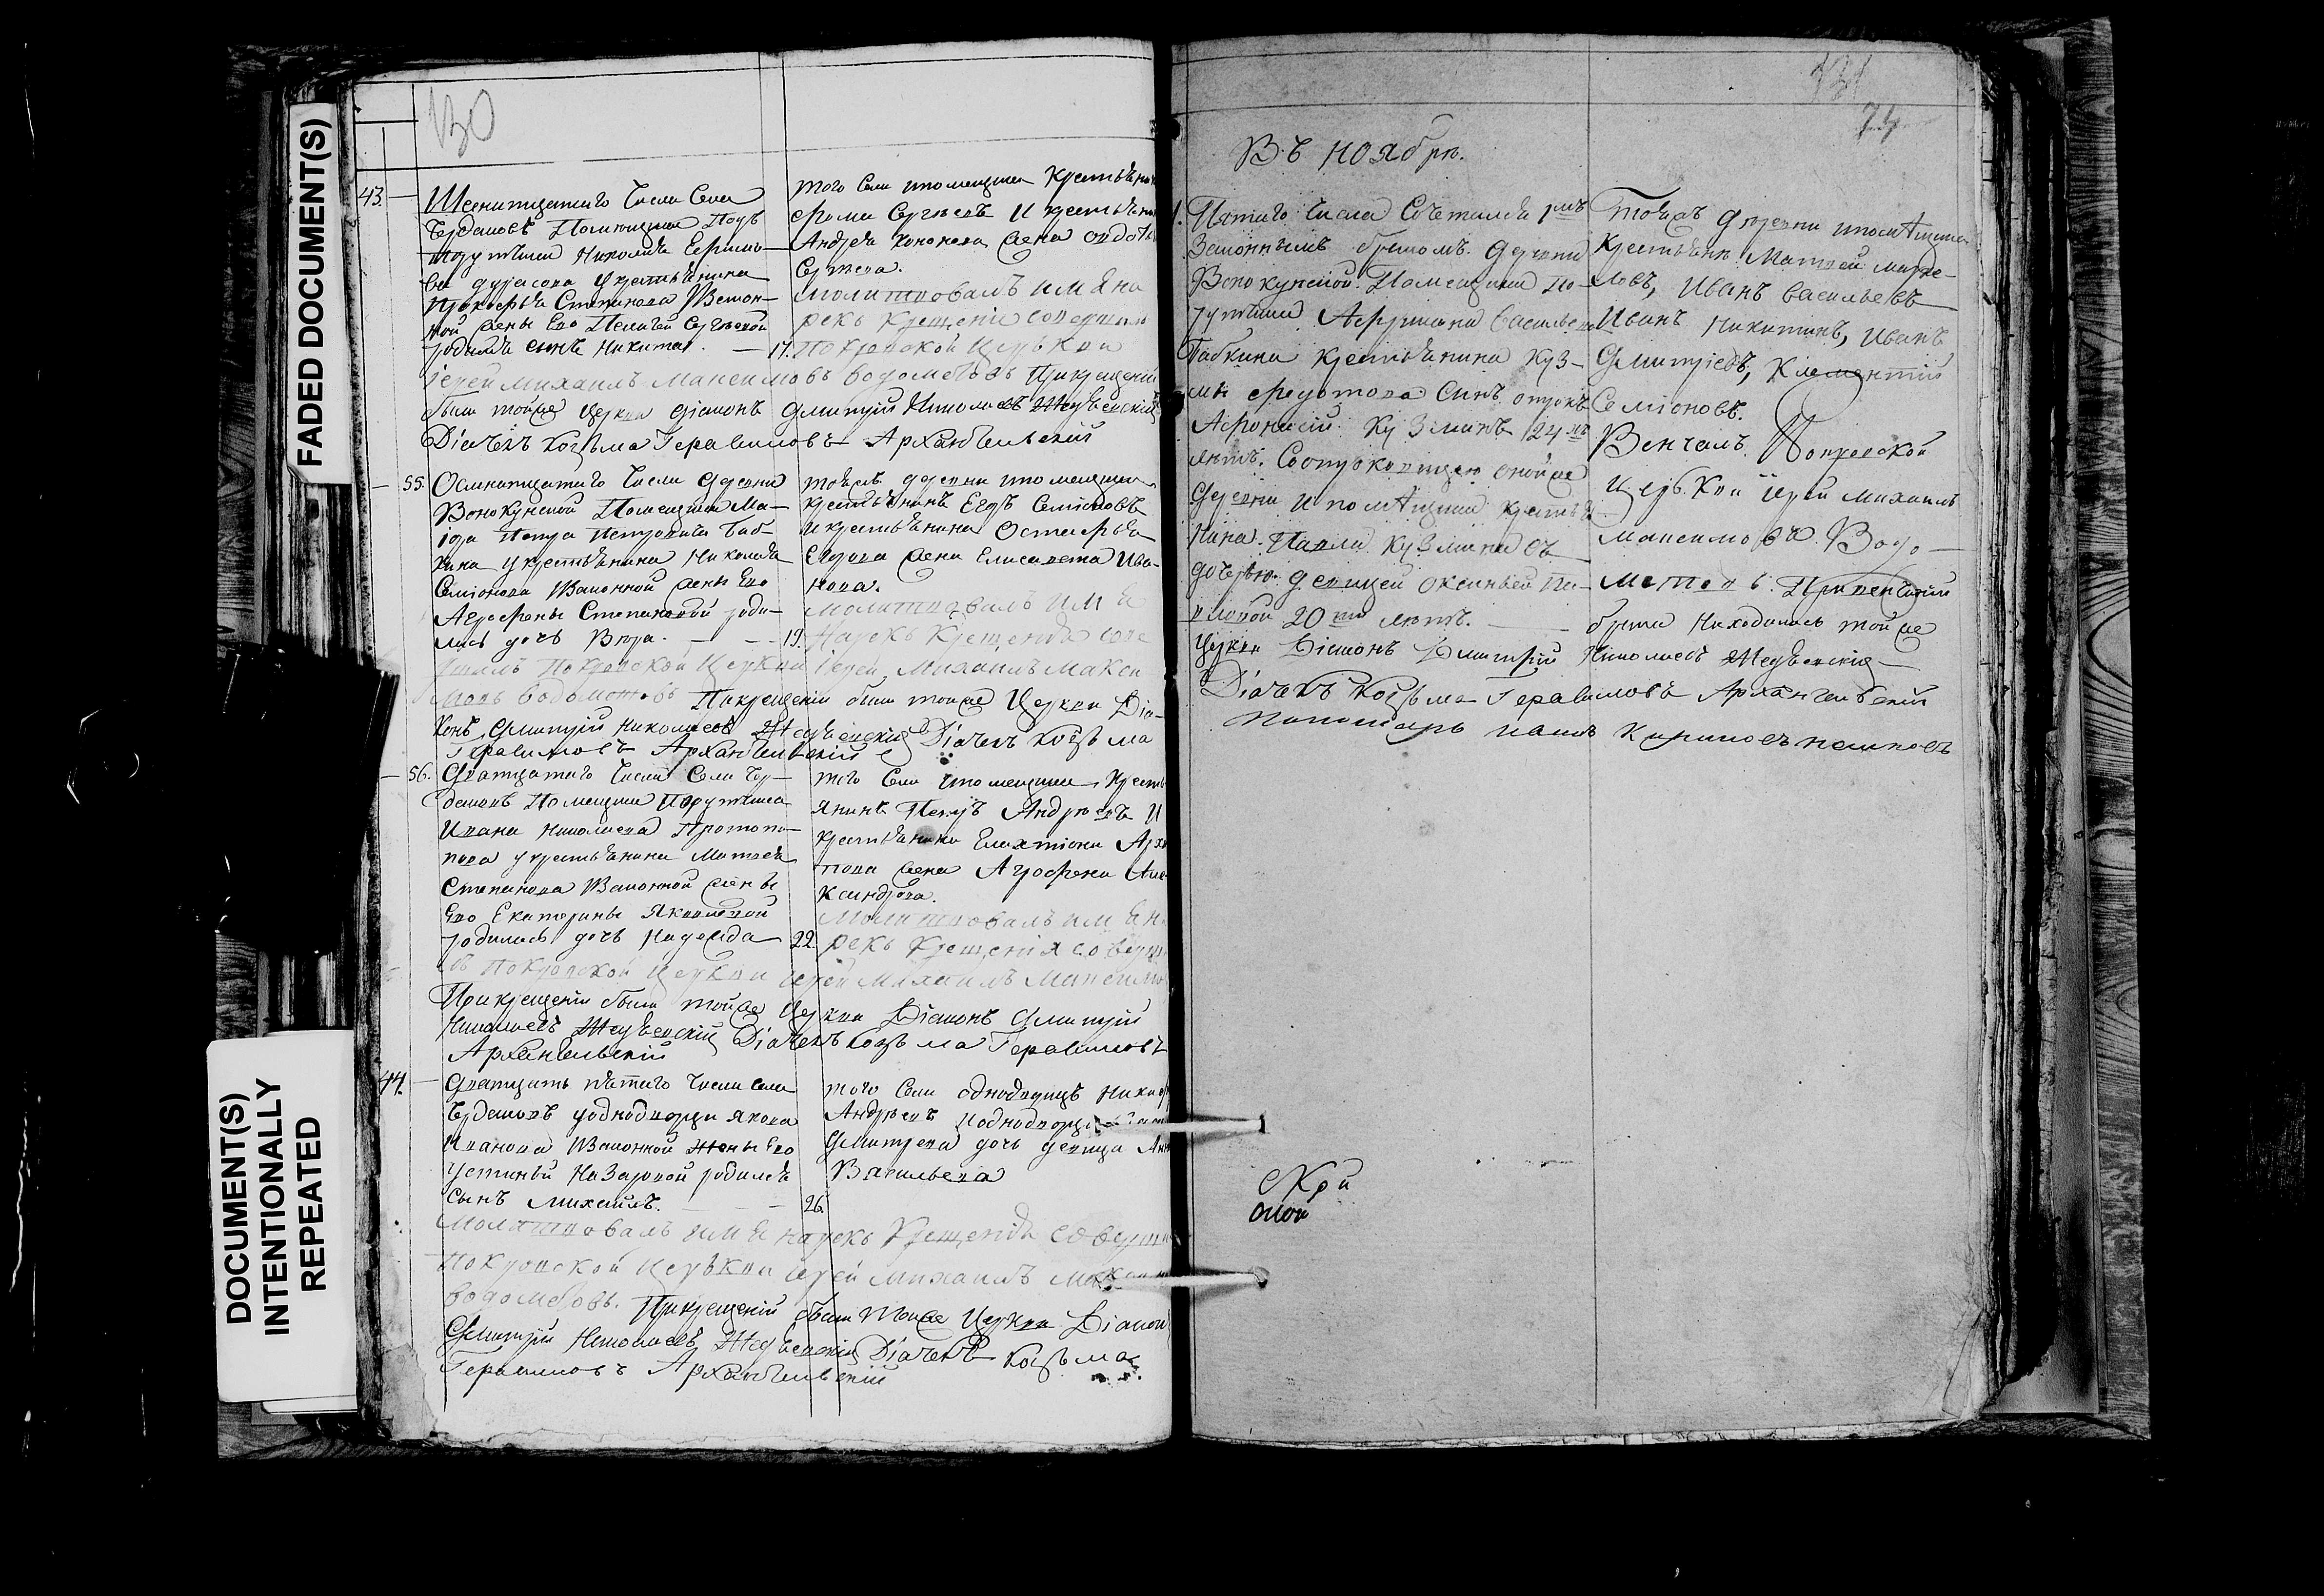 FADED DOCUMENT(S)
DOCUMENT(S)
INTENTIONALLY
REPEATED
130
43.
Шеснатцатаго Числа Села
Бердашовъ Помещика Подъ
порутчика Николая Ефимо-
ва
у крестьянина
Прокофья Степанова Законъ-
ной жены Его Пелагеи Сергѣевой
родился сынъ Никита. — 17.
того Села и помещика Крестьянинъ
Сергѣевъ И крестьянина
Андрея жена Федотья
Сергѣева.
Молитвовалъ имя на
рекъ крещеніе совершилъ
Покровской Церькви
іерей Михаилъ Максимовъ Водометовъ При крещеніи
были тойже Церкви Діаконъ Дмитрій Николаевъ
Діачекъ Козьма Герасимовъ Архангельскій
55. Осмнатцатаго Числа Деревни
Вонокунской Помещика Ма-
іора Петра Петровича Баб-
кина у крестьянина Николая
Семіонова Законной жены Его
Агрофены Степановой роди-
лась дочъ Вѣра. — — 19.
тойжъ деревни и помещика
крестьянинъ Егоръ Семіоновъ
и крестьянина Остафья
Егорова жена Елисавета Ива-
нова.
Молитвовалъ имя
Нарекъ Крещеніе сове
ршилъ Покровской Церкви Іерей Михаилъ Макси
мовъ Водометовъ При крещеніи были тойже Церкви Діа-
конъ Дмитрій Николаевъ Діачекъ Козьма
Герасимовъ Архангельскій
56. Дватцатаго Числа Села Бер-
дашовъ Помещика Порутчика
Ивана Николаева Протопо-
пова у крестьянина Матвея
Степанова Законной жены
Его Екатерины Яковлевой
родилась дочъ Надежда — 22.
того Села и помещика Кресть
янинъ Петръ Андреевъ И
крестьянина
жена Агрофена Але
ксандрова.
Молитвовалъ имя на
рекъ Крещенія соверши
лъ Покровской Церкви іерей Михаилъ Максимо
При крещеніи были тойже Церкви Діаконъ Дмитрій
Николаевъ Діачекъ Козьма Герасимовъ
Архангельскій
44.
Дватцать пятаго Числа Села
Бердашовъ у однодворца Якова
Иванова Законной Жены Его
Устиньи Назаровой родился
сынъ Михаилъ. — — — 26.
того Села однодворецъ
Андреевъ и однодворца
Дмитрева дочь девица
Васильева
Молитвовалъ имя нарекъ Крещеніе соверши
Покровской Церькви іерей Михаилъ
Водометовъ. При крещеніи были тойже Церкви Діакон
Дмитрій Николаевъ Діачекъ Козьма
Герасимовъ Архангельскій
131
74
Въ Ноябрѣ.
1. Пятаго Числа Сочетался 1мъ
Законнымъ бракомъ. Деревни
Вонокунской Помещика По-
рутчика Васильева
Бабкина крестьянина Куз-
мы Федотова Сынъ отрокъ
Афонасій Кузминъ 24
лѣтъ. Со отроковицею онойже
Деревни и помѣщика крестья
нина Павла Кузмина съ
дочерью девицей Оксиньей Па-
вловой 20ти лѣтъ. —
тойжъ деревни и помѣщика
Крестьяне Матвей Марке-
ловъ, Иванъ Васильевъ
Иванъ Никитинъ, Иванъ
Дмитріевъ, Клементій
Семіоновъ.
Венчалъ. Покровской
Церькви Іерей Михаилъ
Максимовъ Водо-
метовъ. При венчаніи
были Находились тойже
Церкви Діаконъ Дмитрій Николаевъ
Діачекъ Козьма Герасимовъ Архангельскій
Пономарь
Скри